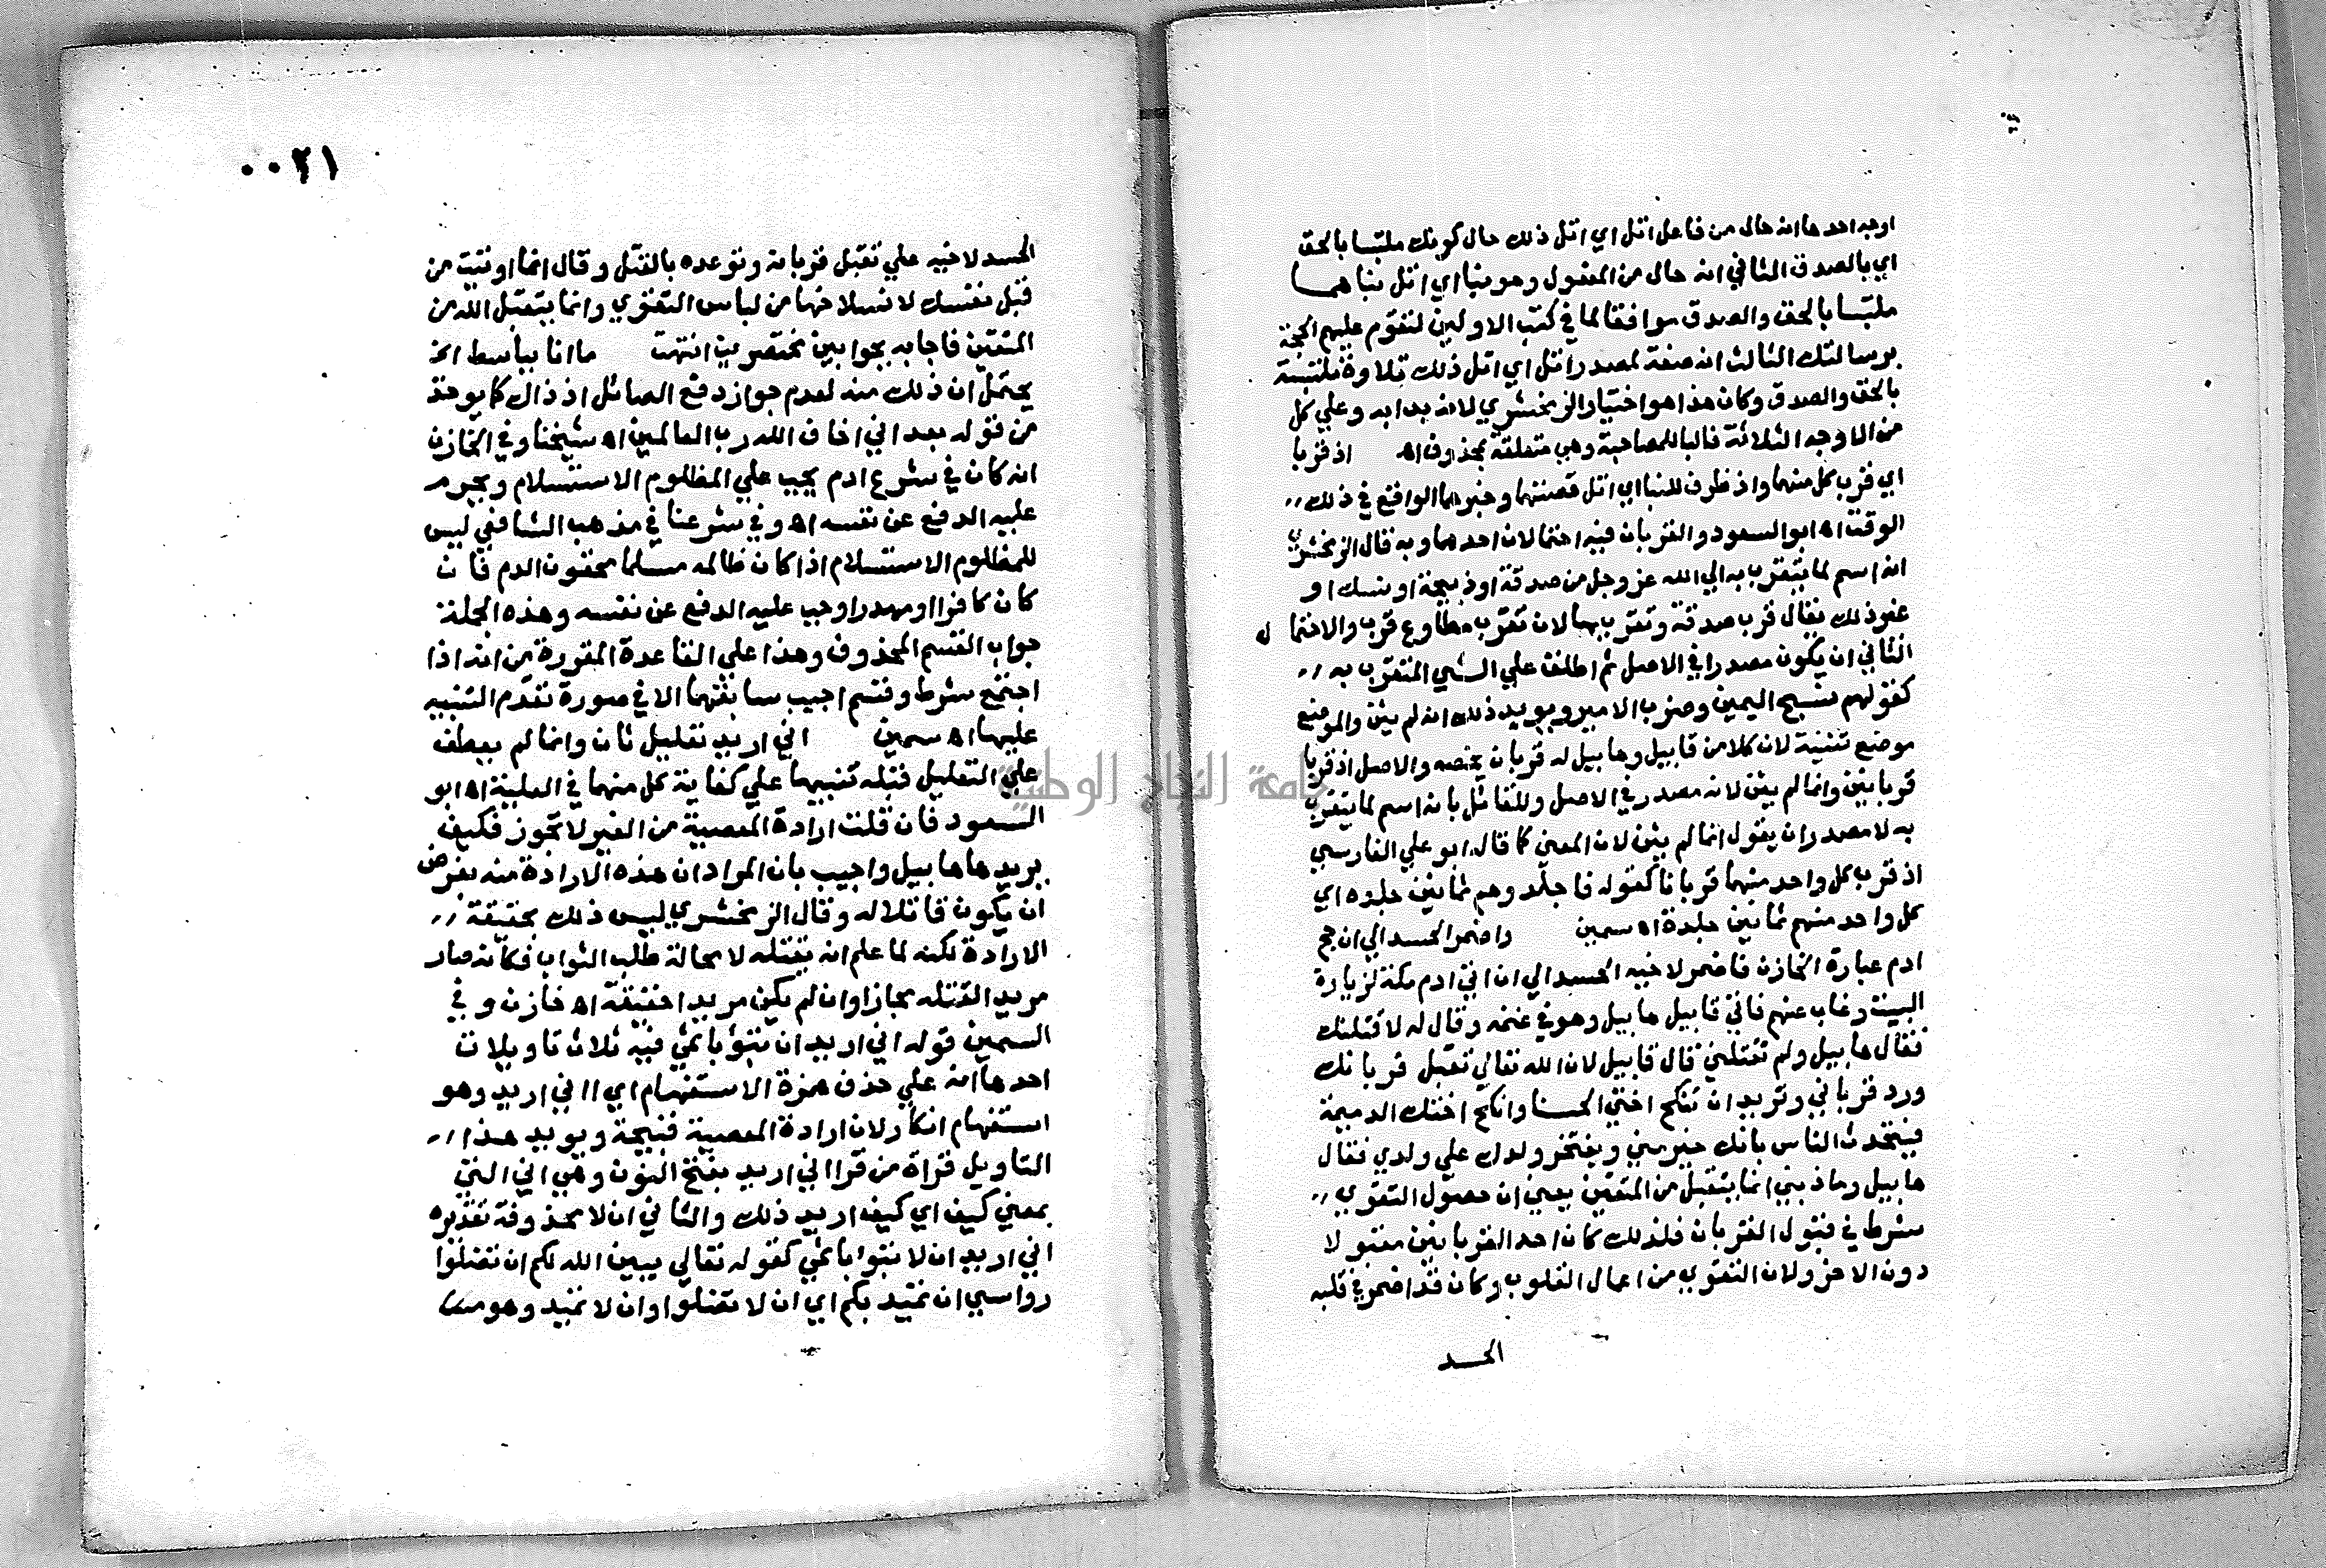 اوجه احدها انه حال من فاعل اتل اي اتل ذلك حال كونك ملتبسا بالحق
اي بالصدق الثاني انه حال من المفعول وهو نبا اي اتل نباهما
ملتبسا بالحق والصدق موافقا لما في كتب الاولين لتقوم عليهم الحجة
برسالتك الثالث انه صفة لمصدر اتل اي اتل ذلك تلاوة ملتبسة
بالحق والصدق وكان هذا هو اختيار الزمخشري لانه بدا به وعلي كل
من الاوجه الثلاثة فالبا للمصاحبة وهي متعلقة بمحذوف اه اذ قربا
اي قرب كل منهما واذ ظرف للنبا اي اتل قصتهما وخبرهما الواقع في ذلك
الوقت اه ابو السعود والقربان فيه احتمالان احدهما وبه قال الزمخشري
انه اسم لما يتقرب به الي الله عز وجل من صدقة او ذبيحة او نسك او
غير ذلك يقال قرب صدقة وتقرب بها لان تقرب مطاوع قرب والاحتمال
الثاني ان يكون مصدرا في الاصل ثم اطلق علي الشي المتقرب به
كقولهم نسج اليمين وضرب الامير ويويد ذلك انه لم يثن والموضع
موضع تثنية لان كلا من قابيل وهابيل له قربان يخصه والاصل اذ قربا
قربانين وانما لم يثن لانه مصدر في الاصل وللقائل بانه اسم لما يتقرب
به لا مصدر ان يقول انما لم يثن لان المعني كما قال ابو علي الفارسي
اذ قرب كل واحد منهما قربانا كقوله فاجلدوهم ثمانين جلده اي
كل واحد منهم ثمانين جلدة اه سمين واضمر الحسد الي ان حج
ادم عبارة الخازن فاضمر لاخيه الحسد الي ان اتي ادم مكة لزيارة
البيت وغاب عنهم فاتي قابيل هابيل وهو في غنمه وقال له لاقتلنك
فقال هابيل ولم تقتلني قال قابيل لان الله تعالي تقبل قربانك
ورد قرباني وتريد ان تنكح اختي الحسنا وانكح اختك الدميمة
فيتحدث الناس بانك خير مني ويفتخر ولدك علي ولدي فقال
هابيل وما ذنبي انما يتقبل من المتقين يعني ان حصول التقوي
شرط في قبول القربان فلذلك كان احد القربانين مقبولا
دون الاخر ولان التقوي من اعمال القلوب وكان قد اضمر في قلبه
الحسد
٠٠٢١
الحسد لاخيه علي تقبل قربانه وتوعده بالقتل وقال انما اوتيت من
قبل نفسك لانسلاخها من لباس التقوي وانما يتقبل الله من
المتقين فاجابه بجوابين مختصرين انتهت ما انا بباسط الخ
يحتمل ان ذلك منه لعدم جواز دفع الصائل اذ ذاك كما يوخذ
من قوله بعد اني اخاف الله رب العالمين اه شيخنا وفي الخازن
انه كان في شرع ادم يجب علي المظلوم الاستسلام ويحرم
عليه الدفع عن نفسه اه وفي شرعنا في مذهب الشافعي ليس
للمظلوم الاستسلام اذا كان ظالمه مسلما محقون الدم فان
كان كافرا او مهدرا وجب عليه الدفع عن نفسه وهذه الجملة
جواب القسم المحذوف وهذا علي القاعدة المقررة من انه اذا
اجتمع شرط وقسم اجيب سابقهما الا في صورة تقدم التنبيه
عليها اه سمين اني اريد تعليل ثان وانما لم يعطف
علي التعليل قبله تنبيها علي كفاية كل منهما في العلية اه ابو
السعود فان قلت ارادة المعصية من الغير لا تجوز فكيف
يريدها هابيل واجيب بان المراد ان هذه الارادة منه بفرض
ان يكون قاتلا له وقال الزمخشري ليس ذلك بحقيقة
الارادة لكنه لما علم انه يقتله لا محالة طلب الثواب فكأنه صار
مريدا لقتله مجازا وان لم يكن مريدا حقيقة اه خازن وفي
السمين قوله اني اريد ان تبؤ باثمي فيه ثلاث تاويلات
احدها انه علي حذف همزة الاستفهام اي ااني اريد وهو
استفهام انكار لان ارادة المعصية قبيحة ويويد هذا
التاويل قراة من قرا اني اريد بفتح النون وهي اني التي
بمعني كيف اي كيف اريد ذلك والثاني ان لا محذوفة تقديره
اني اريد ان لا تبوا باثمي كقوله تعالي يبين الله لكم ان تضلوا
رواسي ان تميد بكم اي ان لا تضلوا وان لا تميد وهو
جامعة النجاح الوطنية